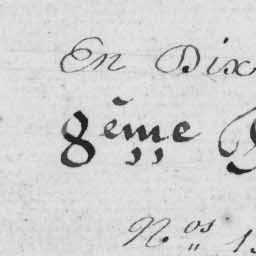 En Dix
8ème
Nos 1